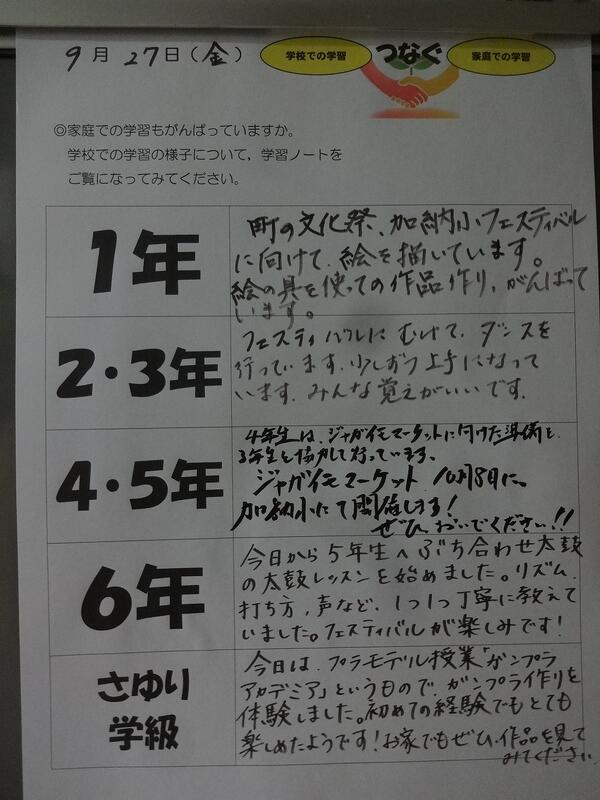 9月27日(金)
学校での学習
つなぐ
家庭での学習
◎家庭での学習もがんばっていますか。
学校での学習の様子について,学習ノートを
ご覧になってみてください。
1年
町の文化祭、加納小フェスティバル
に向けて、絵を描いています。
絵の具を使っての作品作り、がんばって
います。
2・3年
フェスティバルにむけて、ダンスを
行っています。少しずつ上手になって
います。みんな覚えがいいです。
4・5年
4年生は、ジャガイモマーケットに向けた準備を、
3年生と協力して行っています。
ジャガイモマーケット 10月8日に、
加納小にて開催しする!
ぜひ、おいでください!!
6年
今日から5年生へぶち合わせ太鼓
の太鼓レッスンを始めました。リズム、
打ち方、声など、1つ1つ丁寧に教えて
いました。フェスティバルが楽しみです!
さゆり
学級
今日は、プラモデル授業「ガンプラ
アカデミア」というもので、ガンプラ作りを
体験しました。初めての経験でもとても
楽しめたようです!お家でもぜひ、作品を見て
みてください。